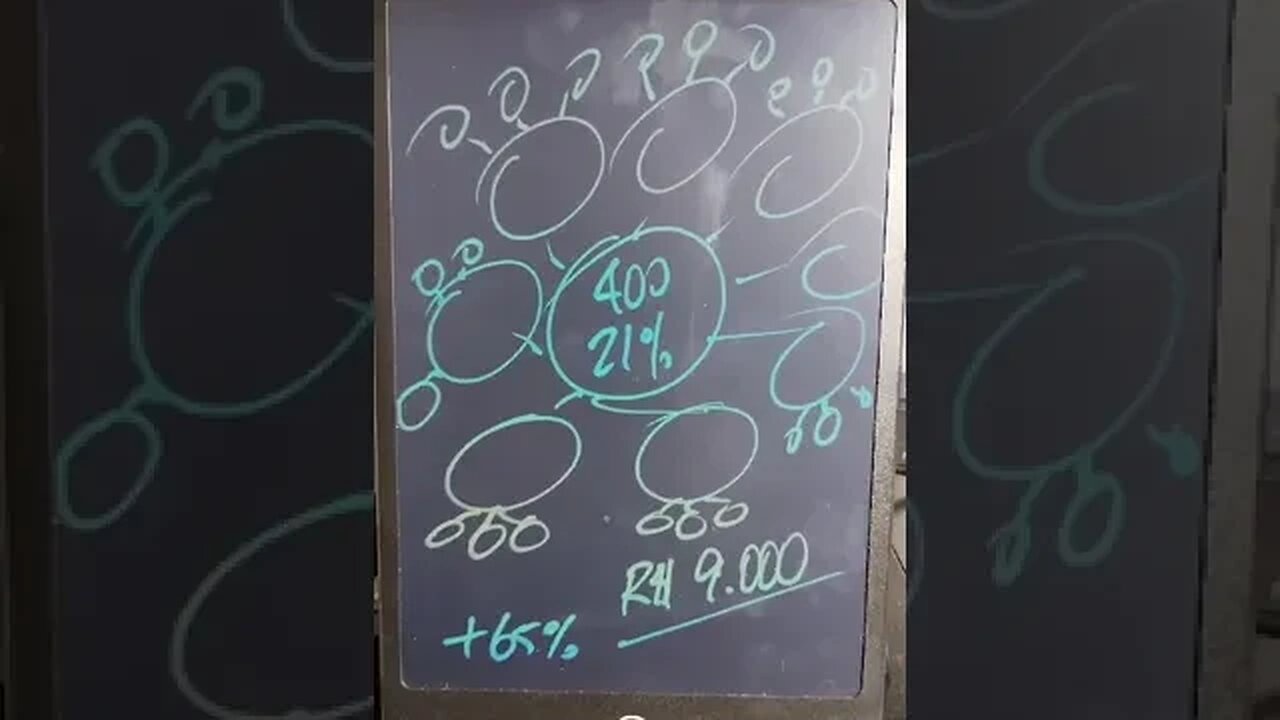 400
21%
R$ 9.000
+65%